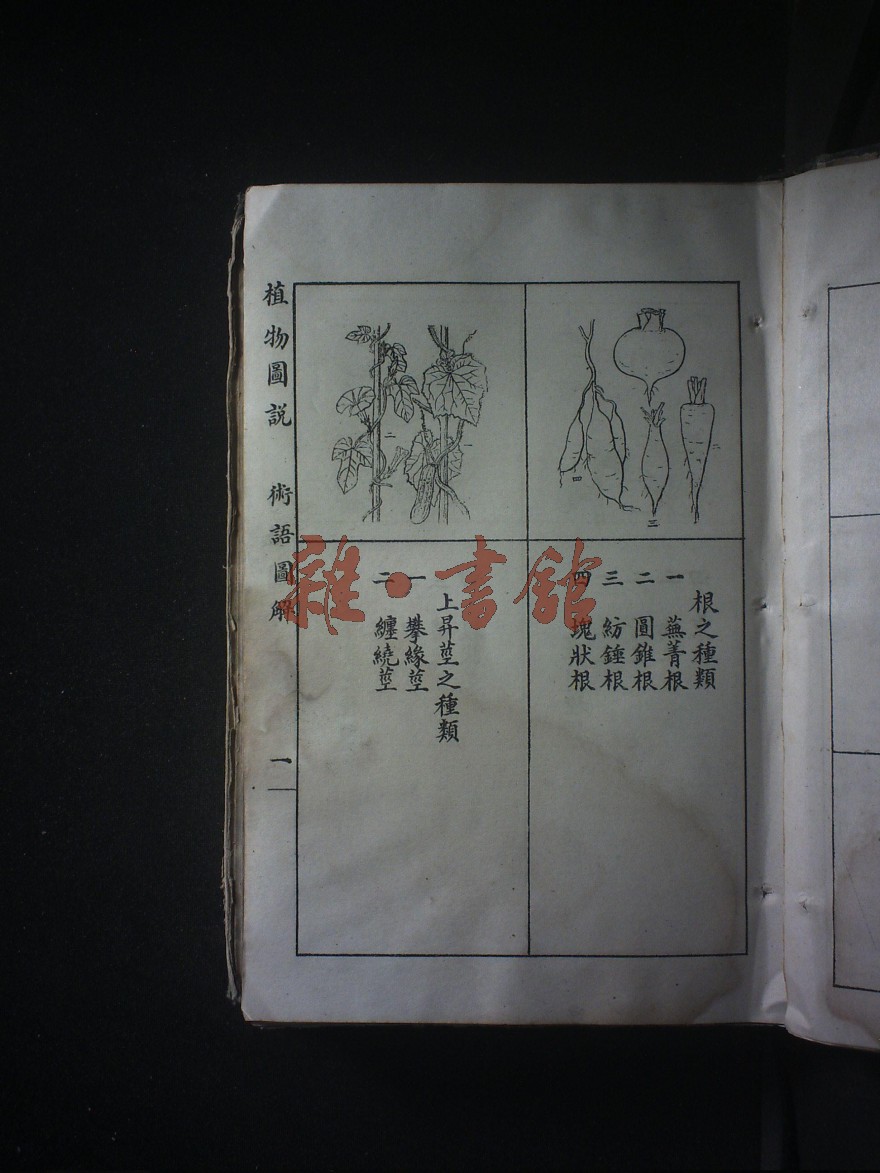 根之種類
一 蕪菁根
二 圓錐根
三 紡錘根
四 塊狀根
上昇莖之種類
一 攀緣莖
二 纏繞莖
植物圖説 術語圖解 一
四
三
一
二
一
雜·書館